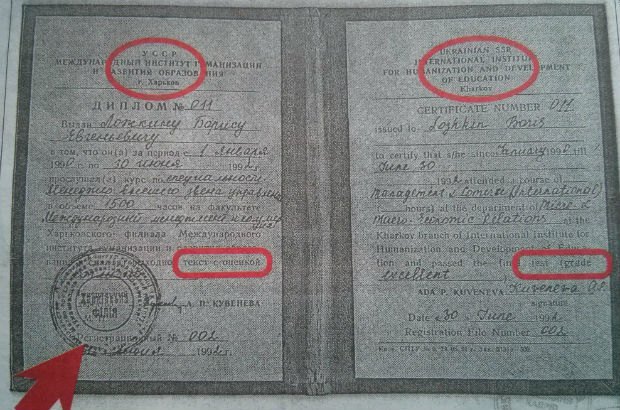 УССР
МЕЖДУНАРОДНЫЙ ИНСТИТУТ ГУМАНИЗАЦИИ
И РАЗВИТИЯ ОБРАЗОВАНИЯ
г. Харьков
ДИПЛОМ № 011
Выдан Ложкину Борису
Евгеньевичу
в том, что он(а) за период с 1 января
по 30 июня
прослушал курс по специальности
Менеджер высшего звена
в объеме 1500 часов на факультете
Международный менеджмент и
Харьковского филиала Международного
института гуманизации и
текст с оценкой
А. П. КУВЕНЕВА
Регистрационный № 002
июня 1992 г.
UKRAINIAN SSR
INTERNATIONAL INSTITUTE
FOR HUMANIZATION AND DEVELOPMENT
OF EDUCATION
Kharkov
CERTIFICATE NUMBER 011
issued to Lozhkin Boris
to certify that s/he since January 1992 till
June 30
1992 attended a course of
Management & Commerce (International)
hours) at the department of Micro- &
Macro-Economic Relations at the
Kharkov branch of International Institute for
Humanization and Development of Educa-
tion and passed the final test (grade
excellent
ADA P. KUVENEVA Kuveneva A.P.
signature
Date 30 June 1992
Registration File Number 002